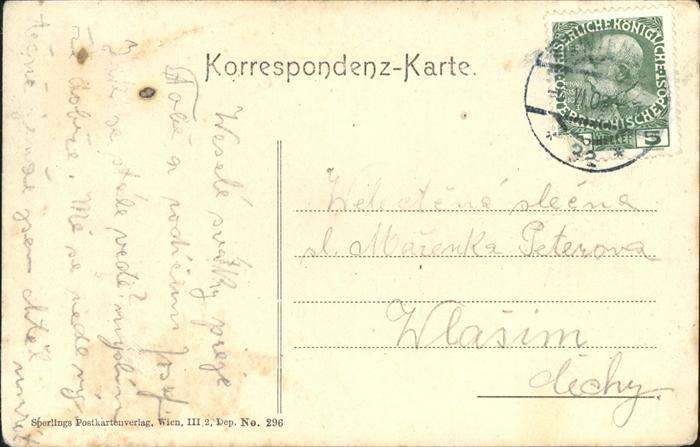 Korrespondenz-Karte.
KAISERLICHE KÖNIGLICHE
ÖSTERREICHISCHE POST
5
Veselé svátky přeje
Tobě a rodičům Josef.
se stále vede? myslím
že dobře. Mě se nedený
jsem chtěl umřít
Velectěná slečna
sl. Mařenka Peterova
Wlašim
Čechy.
Sperlings Postkartenverlag, Wien, III 2, Dep. No. 296